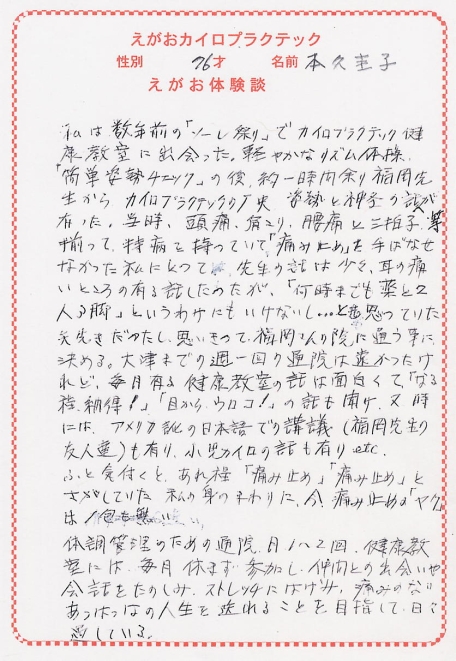 えがおカイロプラクテック
性別 76才 名前 本久圭子
えがお体験談
私は数年前の「ソーレ祭り」でカイロプラクテック健
康教室に出会った。軽やかなリズム体操、
「簡単姿勢チェック」の後、約一時間余り福岡先
生から、カイロプラクテックの歴史、姿勢と神経の話が
有った。当時、頭痛、肩こり、腰痛と三拍子
揃って、持病を持っていて「痛み止め」を手ばなせ
なかった私にとって、先生の話は少々、耳の痛
いところの有る話したのだが、「何時までも薬と2
人3脚」というわけにもいけないし…と思っていた
矢先きだったし、思いきって、福岡さんの院に通う事に
決める。大津までの週一回の通院は遠かったけ
れど、毎月有る健康教室の話は面白くて、「なる
程、納得!」「目からウロコ!」の話も聞け、又時
には、アメリカ訛の日本語での講議(福岡先生の
友人達)も有り、小児カイロの話も有りetc.
ふと気付くと、あれ程「痛み止め」「痛み止め」と
さがしていた私の身のまわりに、今、痛み止める「ヤク」
は1包も無い、
体調管理のための通院、月1〜2回、健康教
室には、毎月休まず参加し、仲間との出会いや
会話をたのしみ、ストレッチにはげみ、痛みのない
あっぱっぱの人生を送れることを目指して、日々
過している。